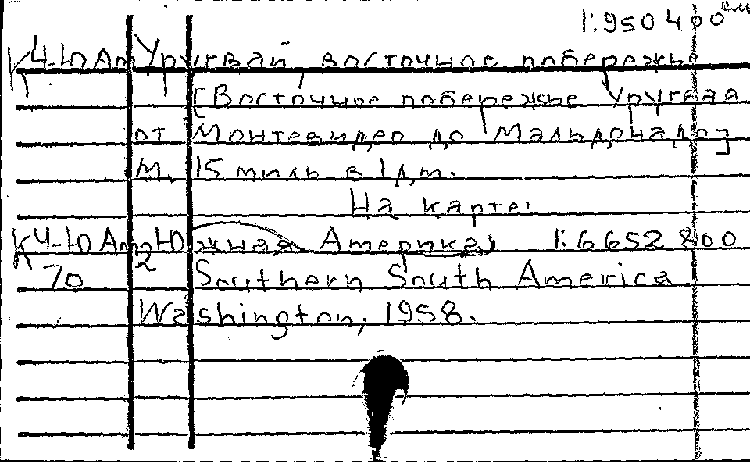 1:950 400
К4-ЮАм Уругвай, восточное побережье
[Восточное побережье Уругвая
от Монтевидео до Мальдонадо]
М. 15 миль в 1 дм.
На карте:
К4-ЮАм Южная Америка, 1:6 652 800
70 2 Southern South America
Washington, 1958.